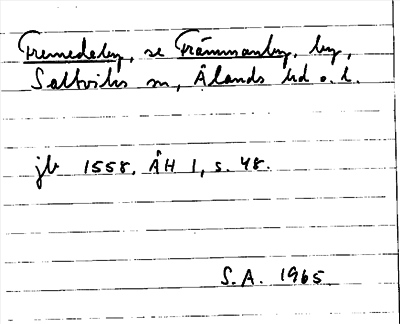 Fremedeby, se Främmanby, by,
Saltviks sn, Ålands hd o. l.
jb 1558. ÅH 1, s. 48.
S.A. 1965